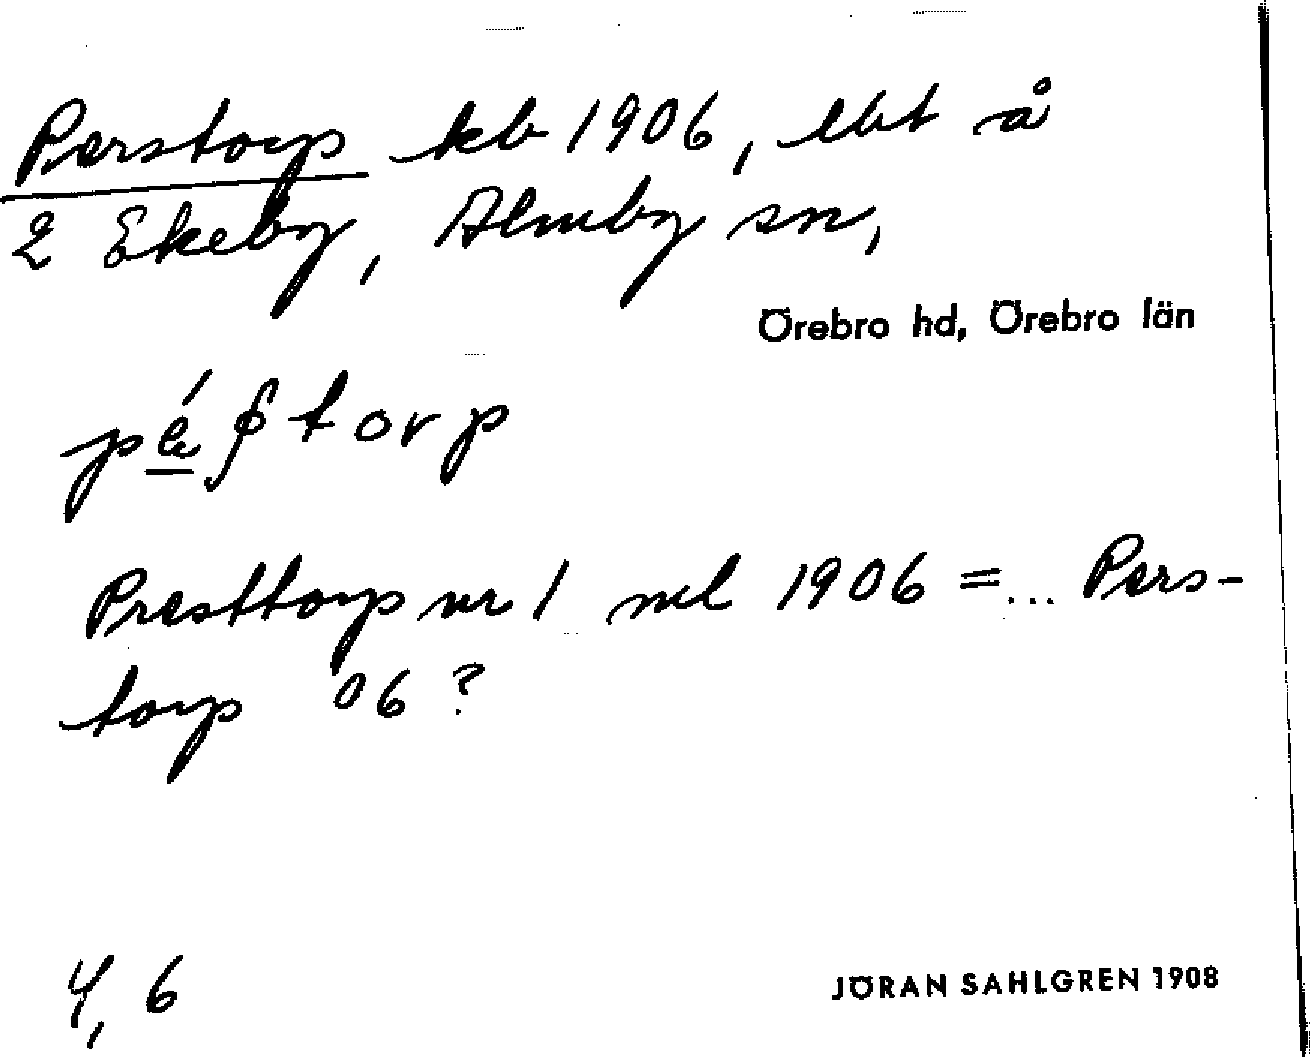 Perstorp kb 1906, lht å
2 Ekeby, Almby sn,
Örebro hd, Örebro län
torp
Presttorp nr 1 ml 1906 = ... Pers-
torp 06?
4, 6
JÖRAN SAHLGREN 1908